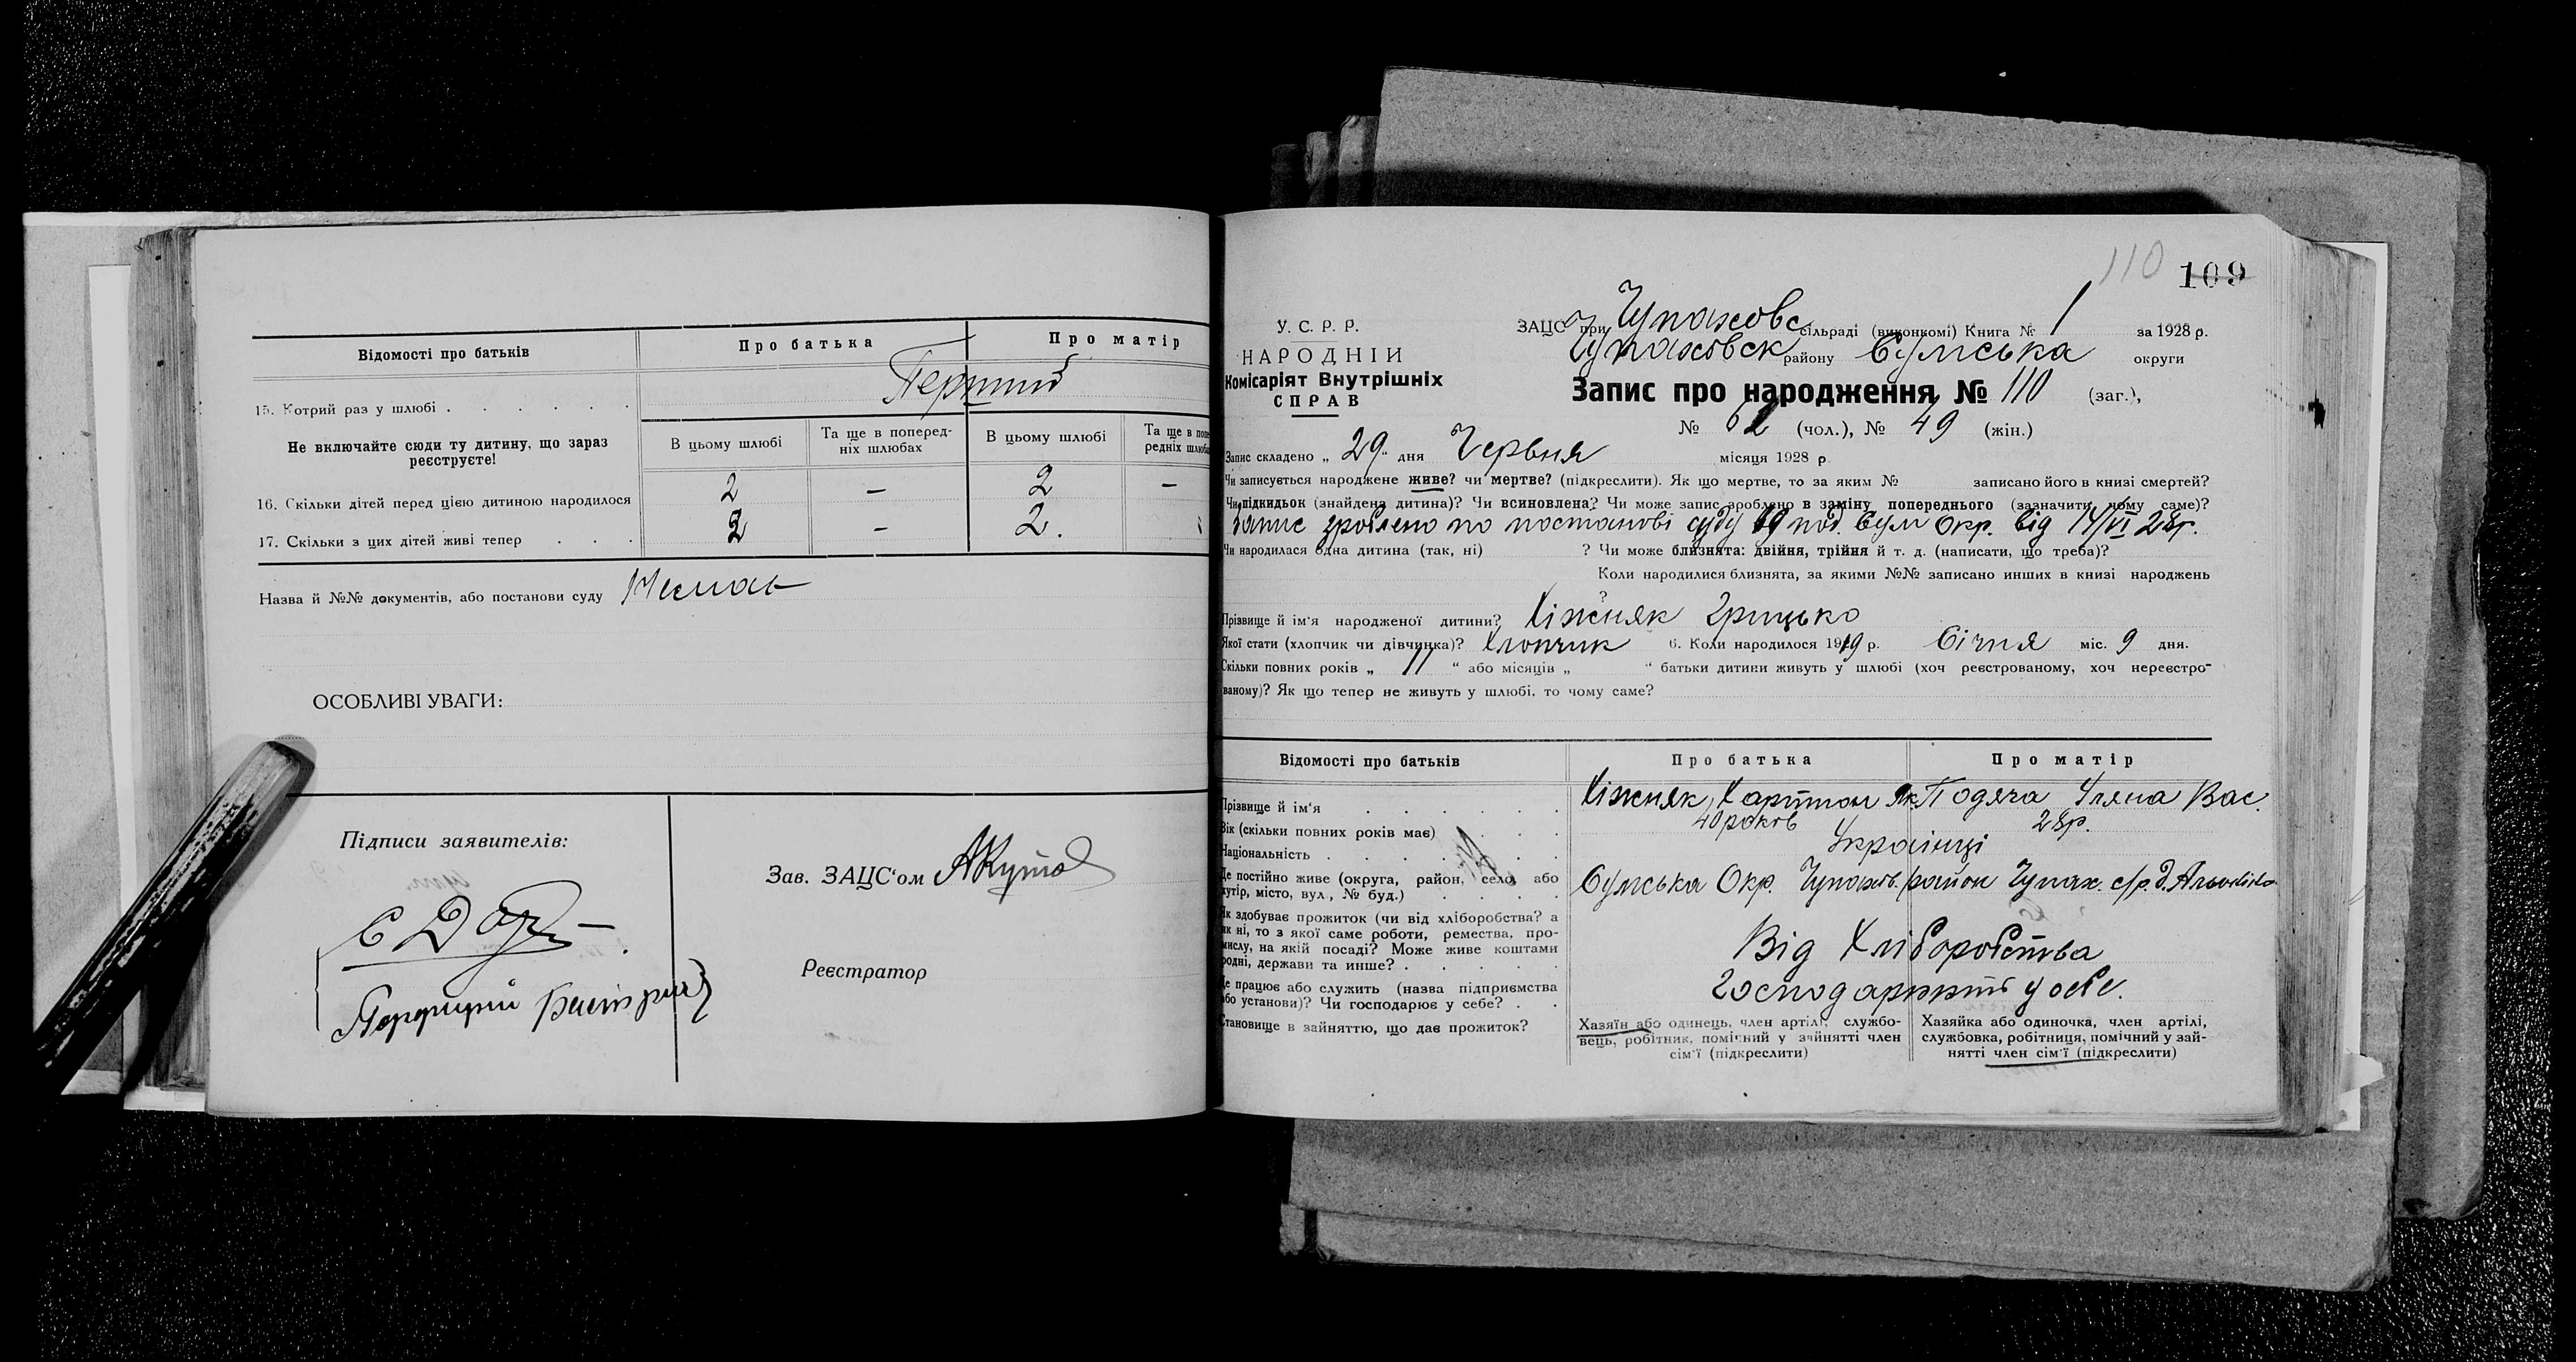 Відомості про батьків
Про батька
Про матір
15. Котрий раз у шлюбі
Перший
Не включайте сюди ту дитину, що зараз реєструєте!
В цьому шлюбі
Та ще в поперед-
ніх шлюбах
В цьому шлюбі
Та ще в попе
редніх шлюба
16. Скільки дітей перед цією дитиною народилося
2 — 2 —
17. Скільки з цих дітей живі тепер
2 — 2.
Назва й №№ документів, або постанови суду Немає
ОСОБЛИВІ УВАГИ:
Підписи заявителів:
Зав. ЗАЦС'ом
Реєстратор
110 109
У. С. Р. Р.
НАРОДНІЙ
Комісаріят Внутрішніх
СПРАВ
ЗАЦС при Чупаховс сільраді (виконкомі) Книга № 1 за 1928 р.
Чупаховск району Сумська округи
Запис про народження № 110 (заг.),
№ 62 (чол.), № 49 (жін.)
Запис складено „ 29 " дня Червня місяця 1928 р.
Чи записується народжене живе? чи мертве? (підкреслити). Як що мертве, то за яким № записано його в книзі смертей?
Чи підкидьок (знайдена дитина)? Чи всиновлена? Чи може запис зроблено в заміну попереднього (зазначити чому саме)?
Запис зроблено по постанові суду Сум Окр. від 14/VI 28р.
Чи народилася одна дитина (так, ні) ? Чи може близнята: двійня, трійня й т. д. (написати, що треба)?
Коли народилися близнята, за якими №№ записано инших в книзі народжень
?
Прізвище й ім'я народженої дитини? Хіжняк Грицько
Якої стати (хлопчик чи дівчинка)? Хлопчик 6. Коли народилося 1919 р. Січня міс. 9 дня.
Скільки повних років „ 11 " або місяців „ " батьки дитини живуть у шлюбі (хоч реєстрованому, хоч нереєстро-
ваному)? Як що тепер не живуть у шлюбі, то чому саме?
Відомості про батьків
Про батька
Про матір
Прізвище й ім'я
Хіжняк, Харитон Як
Подяча Уляна Вас.
Вік (скільки повних років має)
40 років
28р.
Національність
Українці
Де постійно живе (округа, район, село або
хутір, місто, вул., № буд.)
Сумська Окр. Чупахов. район Чупах. с/р.
Як здобуває прожиток (чи від хліборобства? а
як ні, то з якої саме роботи, ремества, про-
мислу, на якій посаді? Може живе коштами
родні, держави та инше?
Від Хліборобства
Де працює або служить (назва підприємства
або установи)? Чи господарює у себе?
Становище в зайняттю, що дає прожиток?
Хазяїн або одинець, член артілі, службо-
вець, робітник, помічний у зайнятті член
сім'ї (підкреслити)
Хазяйка або одиночка, член артілі,
службовка, робітниця, помічний у зай-
нятті член сім'ї (підкреслити)